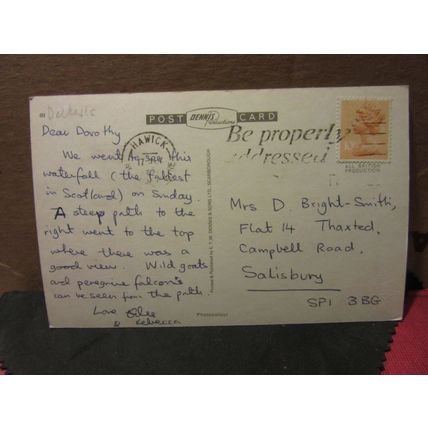 POST DENNIS Productions CARD
Dear Dorothy
We went to this
waterfall (the fullest
in Scotland) on Sunday.
A steep path to the
right went to the top
where there was a
good view. Wild goats
and peregrine falcons
can be seen from the path.
Love
& Rebecca
Photocolour
HAWICK
Be properly
addressed
ALL BRITISH
PRODUCTION
Mrs D. Bright-Smith,
Flat 14 Thaxted,
Campbell Road,
Salisbury
SP1 3BG